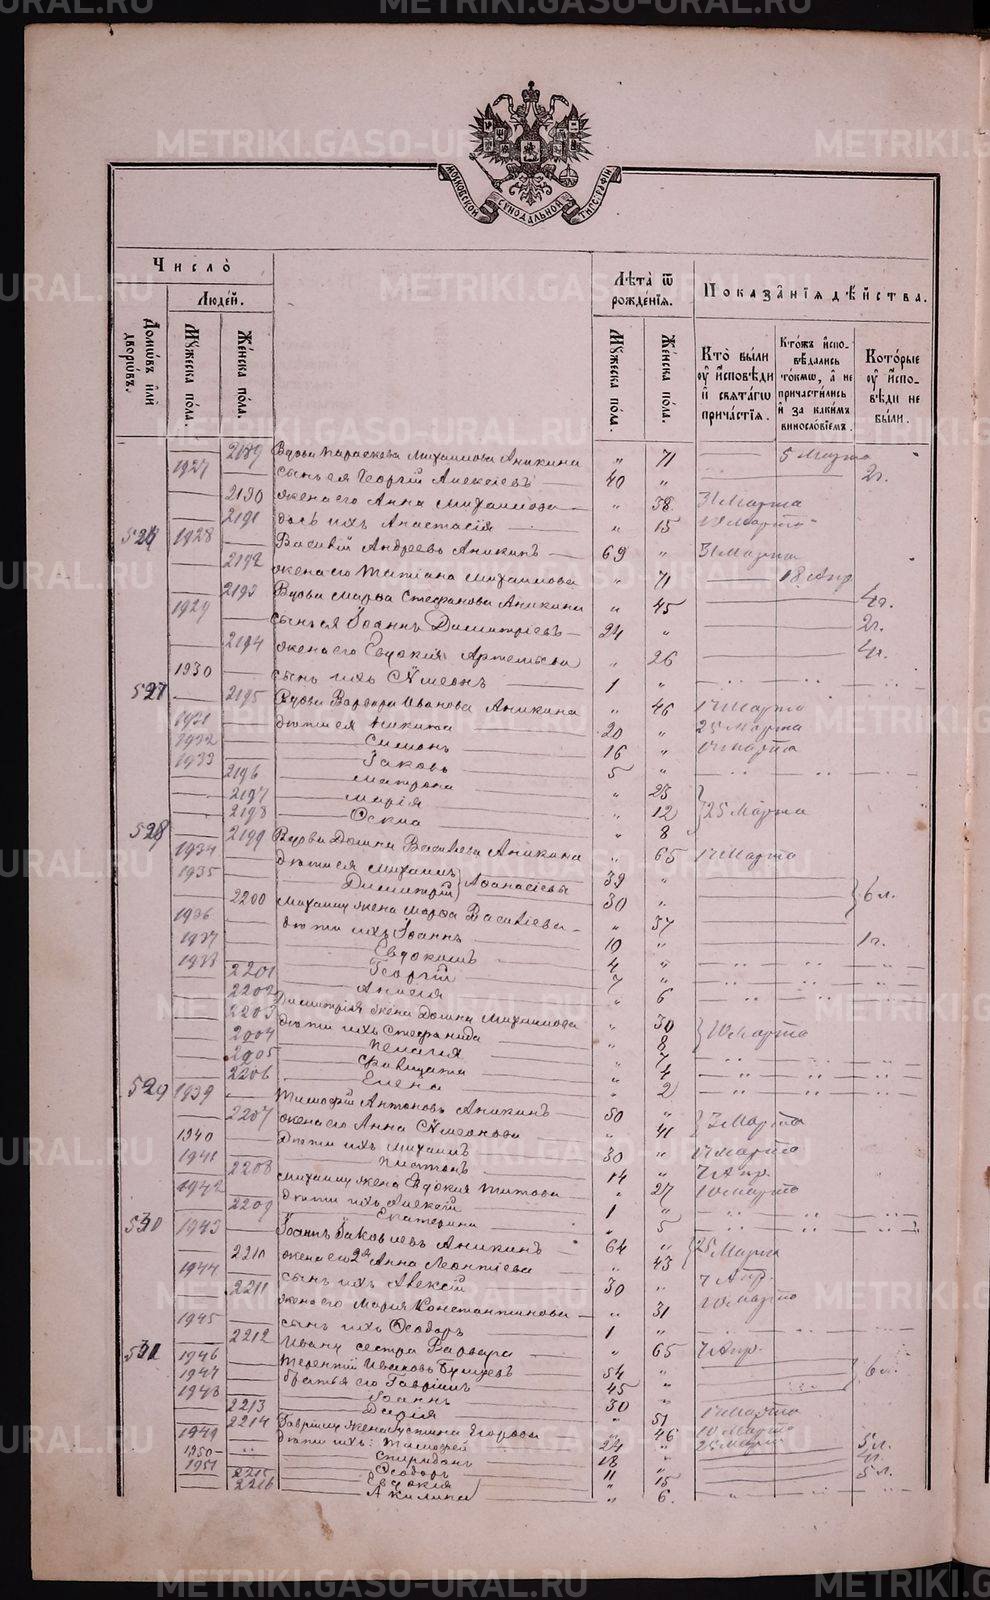 METRIKI.GASO-URAL.RU
МОСКОВСКОЙ СУНОДАЛЬНОЙ ТИПОГРАФІИ
Число̀
Людéй.
Домѡ́въ и҆лѝ дворѡ́въ.
Мꙋ́жеска по́ла.
Же́нска по́ла.
Лѣ́та ѿ рожде́нїѧ.
Мꙋ́жеска по́ла.
Же́нска по́ла.
Показа̑нїѧ дѣ́йства.
Кто̀ бы́ли ᲂу҆ и҆́сповѣди и҆ свѧта́гѡ прича́стїѧ.
Кто́жъ и҆спо-вѣ́дались то́кмѡ, а҆ не причасти́лись и҆ за каки́мъ винослѡ́вїемъ.
Кото́рые ᲂу҆ и҆́спо-вѣди не бы́ли.
2189 Вдова Параскева Михаилова Аникина " 71 5 Марта
1927 сынъ ея Георгій Алексѣевъ 40 " 2г.
2190 жена его Анна Михаилова " 38 31 Марта
2191 дочь ихъ Анастасія " 15 Марта
1928 Василій Андреевъ Аникинъ 69 " 31 Марта
2192 жена его Татіана Михаилова " 71 18 Апр
2193 Вдова Марѳа Стефанова Аникина " 45 4г.
1929 сынъ ея Іоаннъ Димитріевъ 24 " 2г.
2194 жена его Евдокія Артемьева " 26 4г.
1930 сынъ ихъ Сѵмеонъ 1 "
527 2195 Вдова Варвара Иванова Аникина " 46 17 Марта
1931 дѣти ея Никита 20 " 25 Марта
1932 Симонъ 16 " 17 Марта
1933 Іаковъ 5 "
2196 Матрона " 23
2197 Марія " 12 25 Марта
2198 " 8
528 2199 Вдова Домна Васильева Аникина " 65 17 Марта
1934 дѣти ея Михаилъ 39 "
1935 Димитрій Аѳанасіевы 30 " 6 л.
2200 Михаилу жена Марѳа Васильева " 37
1936 дѣти ихъ Іоаннъ 10 " 1г.
1937 Евдокимъ 4 "
1938 Георгій "
2201 Анисія " 6
2202 Димитрія жена Домна Михаилова " 30
2203 дѣти ихъ Стефанида " 8 10 Марта
2004 Пелагія " 7
2005 " 4
2206 Елена " 2
529 1939 Тимофей Антоновъ Аникинъ 50 "
2207 жена его Анна Сѵмеонова " 41 Марта
1940 Дѣти ихъ Михаилъ 30 " 17 Марта
1941 Платонъ 14 " 7 Апр.
2208 Михаилу жена Евдокія Титова " 27 10 Марта
1942 Дѣти ихъ Алексій 1 "
2209 Екатерина " 5
530 1943 Іоаннъ Іаковлевъ Аникинъ 64 "
2210 жена его 2я Анна Леонтіева " 43 25 Марта
1944 сынъ ихъ Алексій 30 " 7 Апр.
2211 жена его Марія Константинова " 31 10 Марта
1945 сынъ ихъ Ѳеодоръ 1 "
2212 Ивану сестра Варвара " 65 7 Апр.
531 1946 Терентій Ивановъ 54 "
1947 братья его Гавріилъ 45 " 6 л.
1948 Іоаннъ 30 "
2213 Дарія " 51 17 Марта
2214 Гавріилу жена Устина Егорова " 46 10 Марта
1949 Дѣти ихъ: Тимофей 24 " 25 Марта
1950 Спиридонъ 18 " 5л.
1951 Ѳеодоръ 11 "
2215 Евдокія " 15 5 л.
2216 Акилина " 6